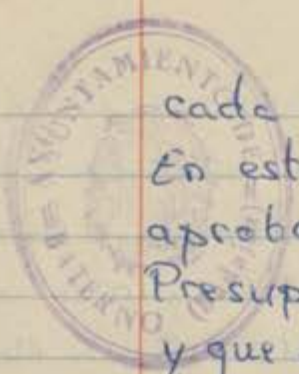 AYUNTAMIENTO DE
cada
En est
aprobo
Presup
y que